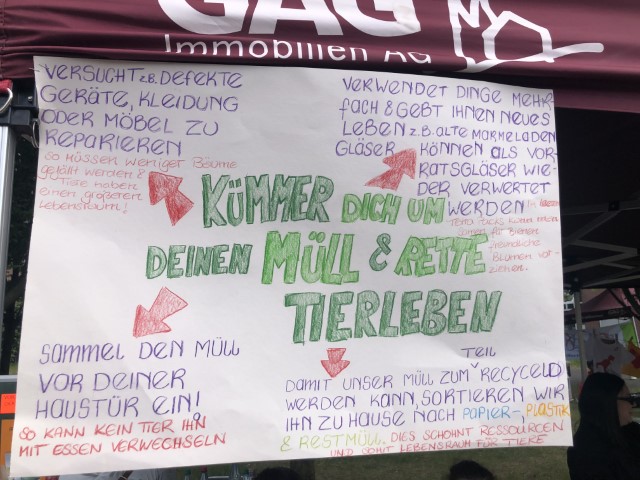 GAG
Immobilien AG
VERSUCHT z.B. DEFEKTE
GERÄTE, KLEIDUNG
ODER MÖBEL ZU
REPARIEREN
so müssen weniger Bäume
gefällt werden &
Tiere haben
einen größeren
Lebensraum!
VERWENDET DINGE MEHR-
fach & GEBT IHNEN NEUES
LEBEN z.B. ALTE MARMELADEN
GLÄSER KÖNNEN ALS VOR-
RATSGLÄSER WIE-
DER VERWERTET
WERDEN
freundliche
Blumen vor-
ziehen.
KÜMMER DICH UM
DEINEN MÜLL & RETTE
TIERLEBEN
SAMMEL DEN MÜLL
VOR DEINER
HAUSTÜR EIN!
SO KANN KEIN TIER IHN
MIT ESSEN VERWECHSELN
TEIL
DAMIT UNSER MÜLL ZUM RECYCELD
WERDEN KANN, SORTIEREN WIR
IHN ZU HAUSE NACH PAPIER-, PLASTIK
& RESTMÜLL. DIES SCHONT RESSOURCEN
UND SOMIT LEBENSRAUM FÜR TIERE